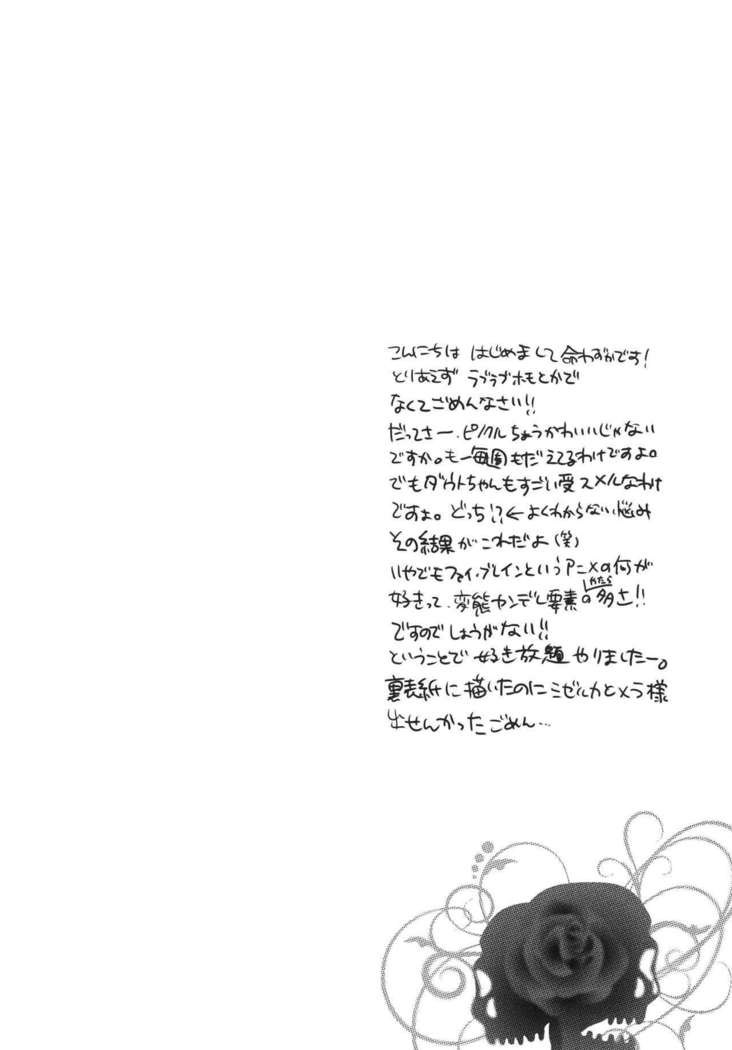 こんにちは はじめまして命わずかです!
とりあえず ラブラブホモとかで
なくてごめんなさい!!
だってさー、ピノクルちょうかわいいじゃない
ですか。も一毎週もだえてるわけですよ。
でもダウトちゃんもすごい受スメルなわけ
ですよ。どっち!?←よくわからない悩み
その結果がこれだよ(笑)
いやでもファイ・ブレインというアニメの何が
好きって、変態ヤンデレ要素の多さ!!
ですのでしょうがない!!
ということで 好き放題やりましたー。
裏表紙に描いたのにミゼルカとメラ様
出せんかったごめん…